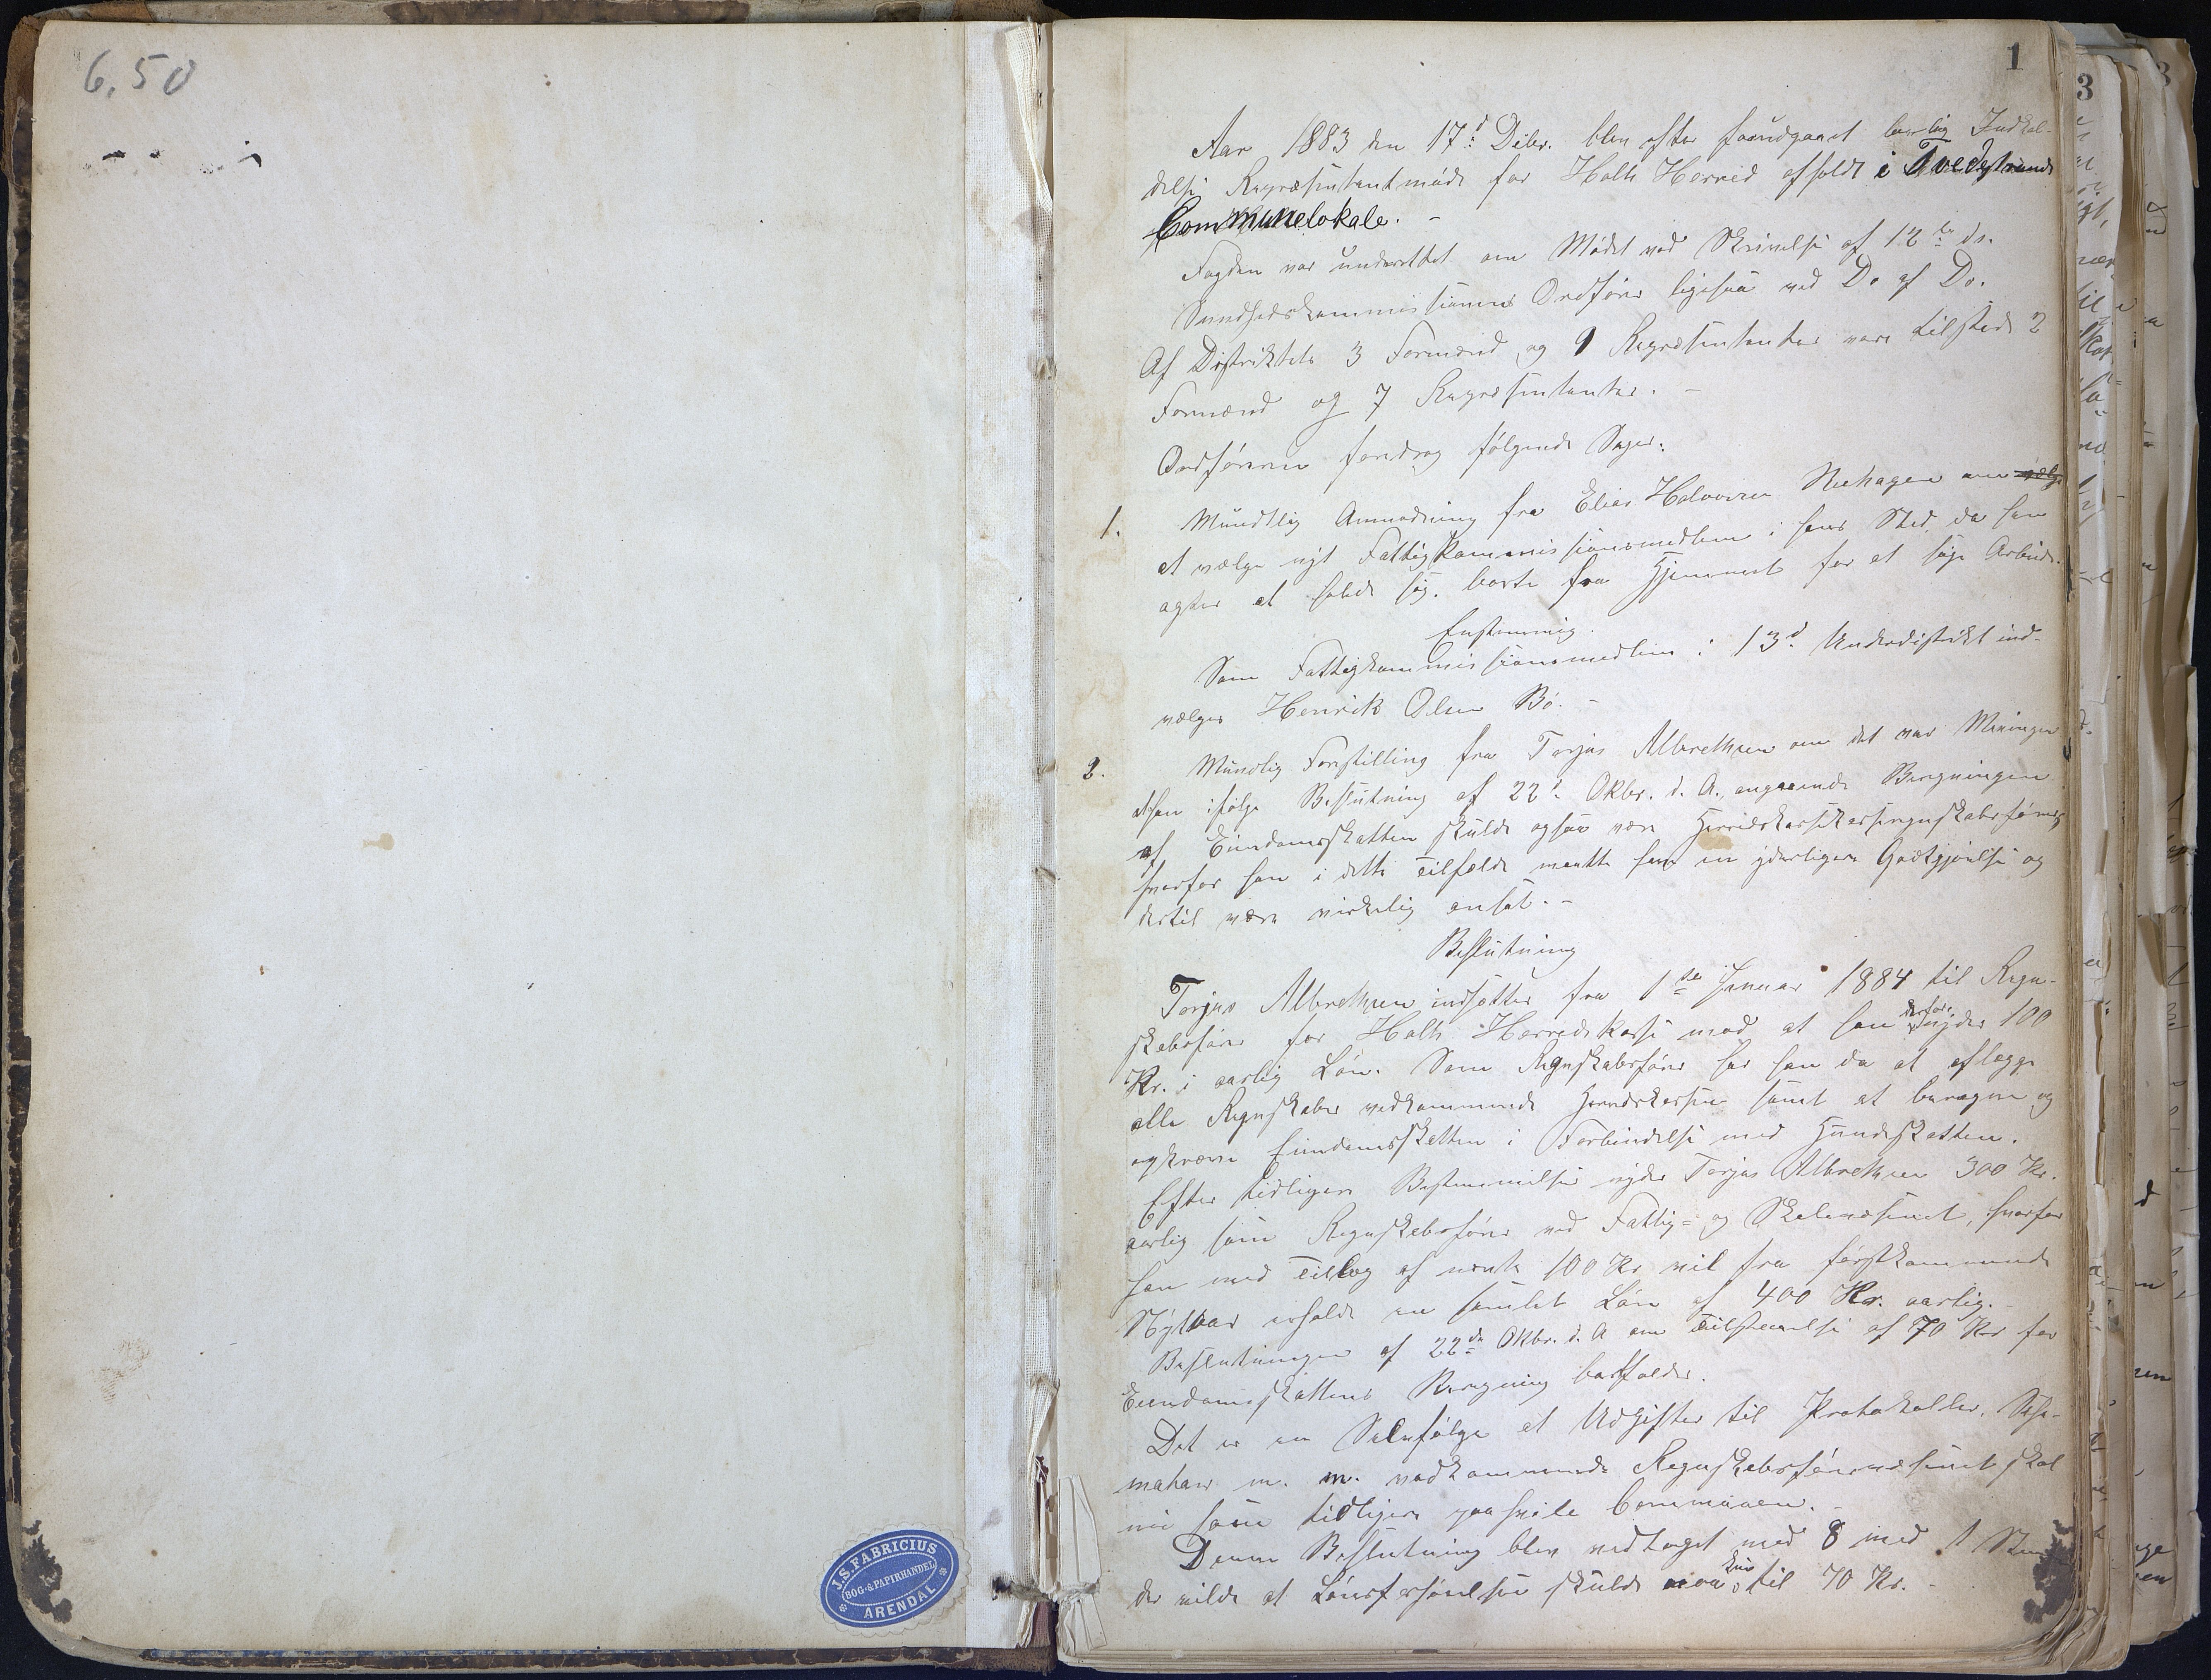 6,50
J.S. FABRICIUS
BOG- & PAPIRHANDEL
ARENDAL
1
Aar 1883 den 17d Decbr. blev efter forudgaaet lovlig Indkal-
delse Repræsentantmøde for Holts Herred afholdt i Tvedestrands
Communelokale. -
Fogden var underrettet om Mødet ved Skrivelse af 12te ds.
Sundhedskommissionens Ordfører ligesaa ved Do af Do.
Af Distriktets 3 Formænd og 9 Repræsentanter vare tilstede 2
Formænd og 7 Repræsentanter. -
Ordføreren foredrog følgende Sager:
1. Mundtlig Anmodning fra Elias Halvorsen om vælge
at vælge nyt Fattigkommissionsmedlem i hans Sted, da han
agter at holde sig borte fra Hjemmet for at søge Arbeide.
Enstemmig.
Som Fattigkommissionsmedlem i 13d Underdistrikt ind-
vælges Henrik Olsen Bø. -
2. Mundlig Forestilling fra Torjus Albrethsen om det var Meningen
at han ifølge Beslutning af 22d Oktbr. d. A. angaaende Beregningen
af Eiendomsskatten skulde ogsaa være Herredskassekasseregnskabsfører,
hvorfor han i dette Tilfælde maatte have en yderligere Godtgjørelse og
dertil være virkelig ansat. -
Beslutning
Torjus Albrethsen indsættes fra 1ste Januar 1884 til Regn-
skabsfører for Holts Herredskasse mod at han derfor nyder 100
Kr. i aarlig Løn. Som Regnskabsfører har han da at aflægge
alle Regnskaber vedkommende Herredskassen samt at beregne og
opkræve Eiendomsskatten i Forbindelse med Hundeskatten.
Efter tidligere Bestemmelse nyder Torjus Albrethsen 300 Kr.
aarlig som Regnskabsfører ved Fattig- og Skolevæsenet, hvorfor
han med Tillæg af nævnte 100 Kr vil fra førstkommende
Nytaar erholde en samlet Løn af 400 Kr. aarlig. -
Beslutningen af 22de Oktbr. d. A om Tilstaaelse af 70 Kr for
Eiendomsskattens Beregning bortfalder.
Det er en Selvfølge at Udgifter til Protokoller, Sche-
maer m. m. vedkommende Regnskabsførervæsenet skal
nu som tidligere paahvile Communen. -
Denne Beslutning blev vedtaget med 8 mod 1 Stemme
der vilde at Lønsforhøielsen skulde være kun til 70 Kr. -